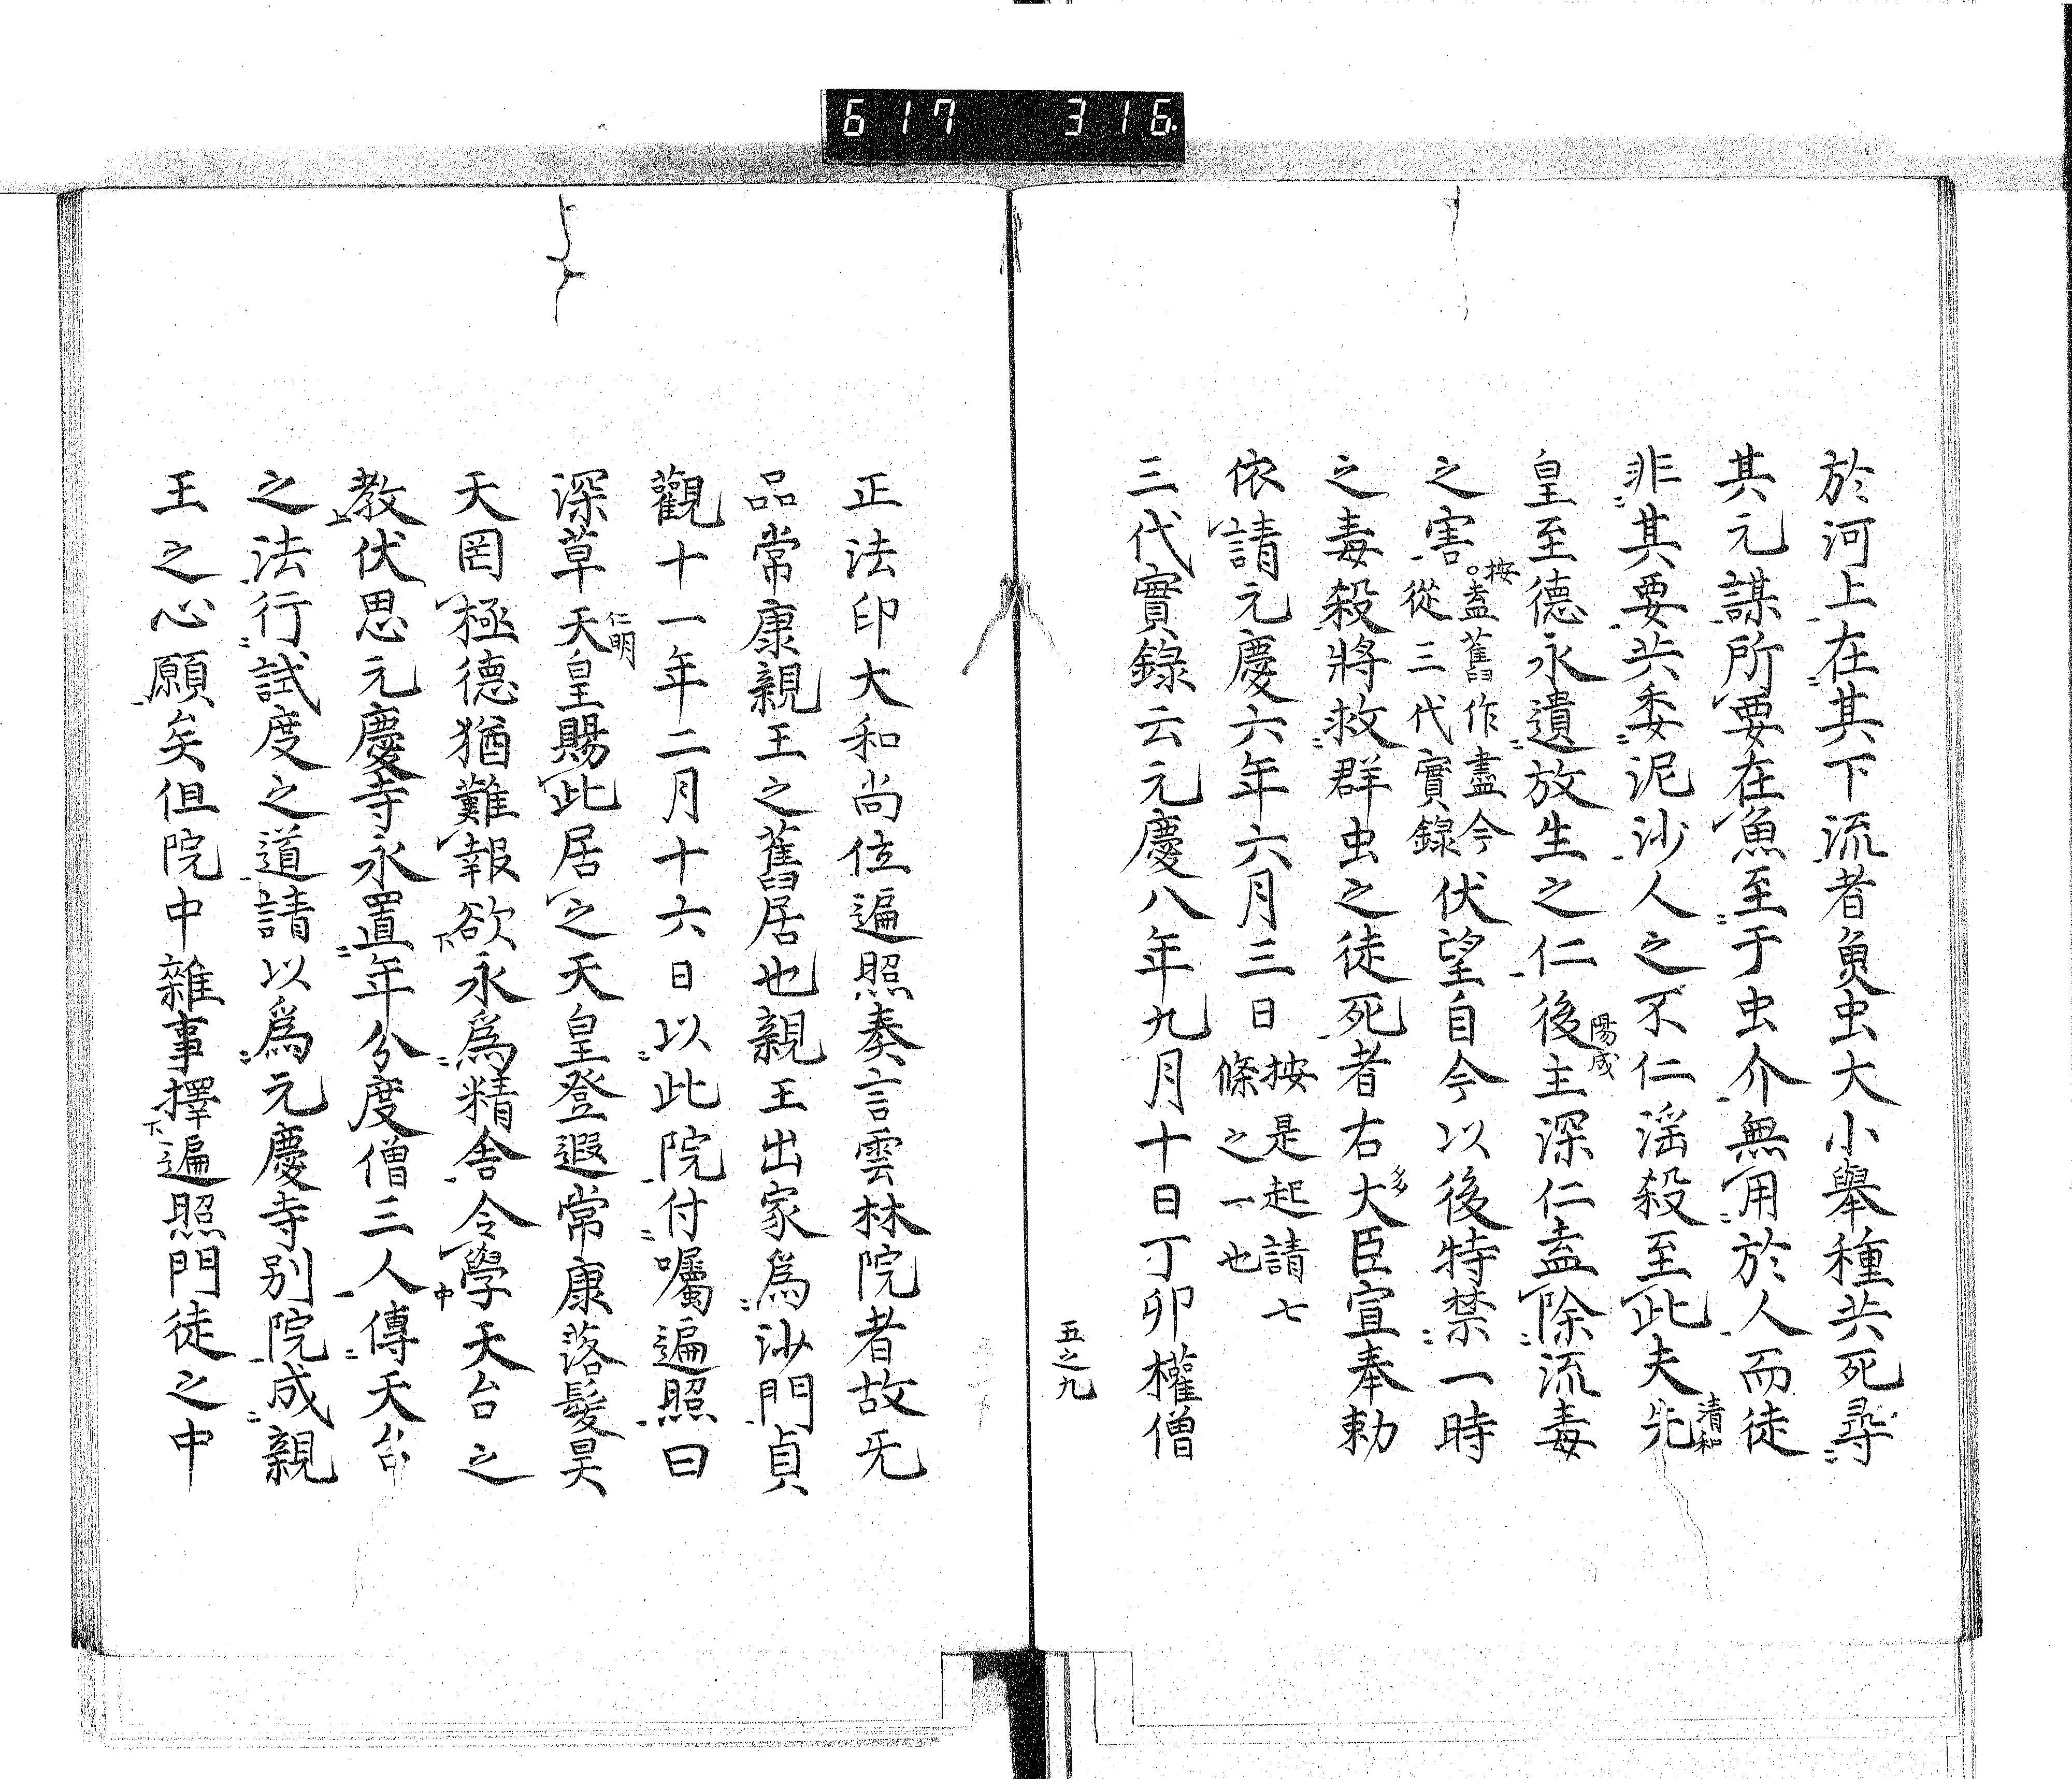 617 316
於河上在其下流者魚虫大小舉種共死尋
其元謀所要在魚至于虫介無用於人而徒
非其要共委泥沙人之不仁滛殺至此夫先清和
皇至德永遺放生之仁後主陽成深仁盍除流毒
之害按盍舊作盡今從三代實錄伏望自今以後特禁一時
之毒殺將救群虫之徒死者右大臣多宣奉勅
依請元慶六年六月三日按是起請七條之一也
三代實錄云元慶八年九月十日丁卯權僧
五之九
正法印大和尚位遍照奏言雲林院者故无
品常康親王之舊居也親王出家爲沙門貞
觀十一年二月十六日以此院付囑遍照曰
深草天皇仁明賜此居之天皇登遐常康落髮昊
天罔極德猶難報欲永爲精舍令學天台之
教伏思元慶寺永置年分度僧三人傳天台
之法行試度之道請以爲元慶寺別院成親
王之心願矣但院中雜事擇遍照門徒之中